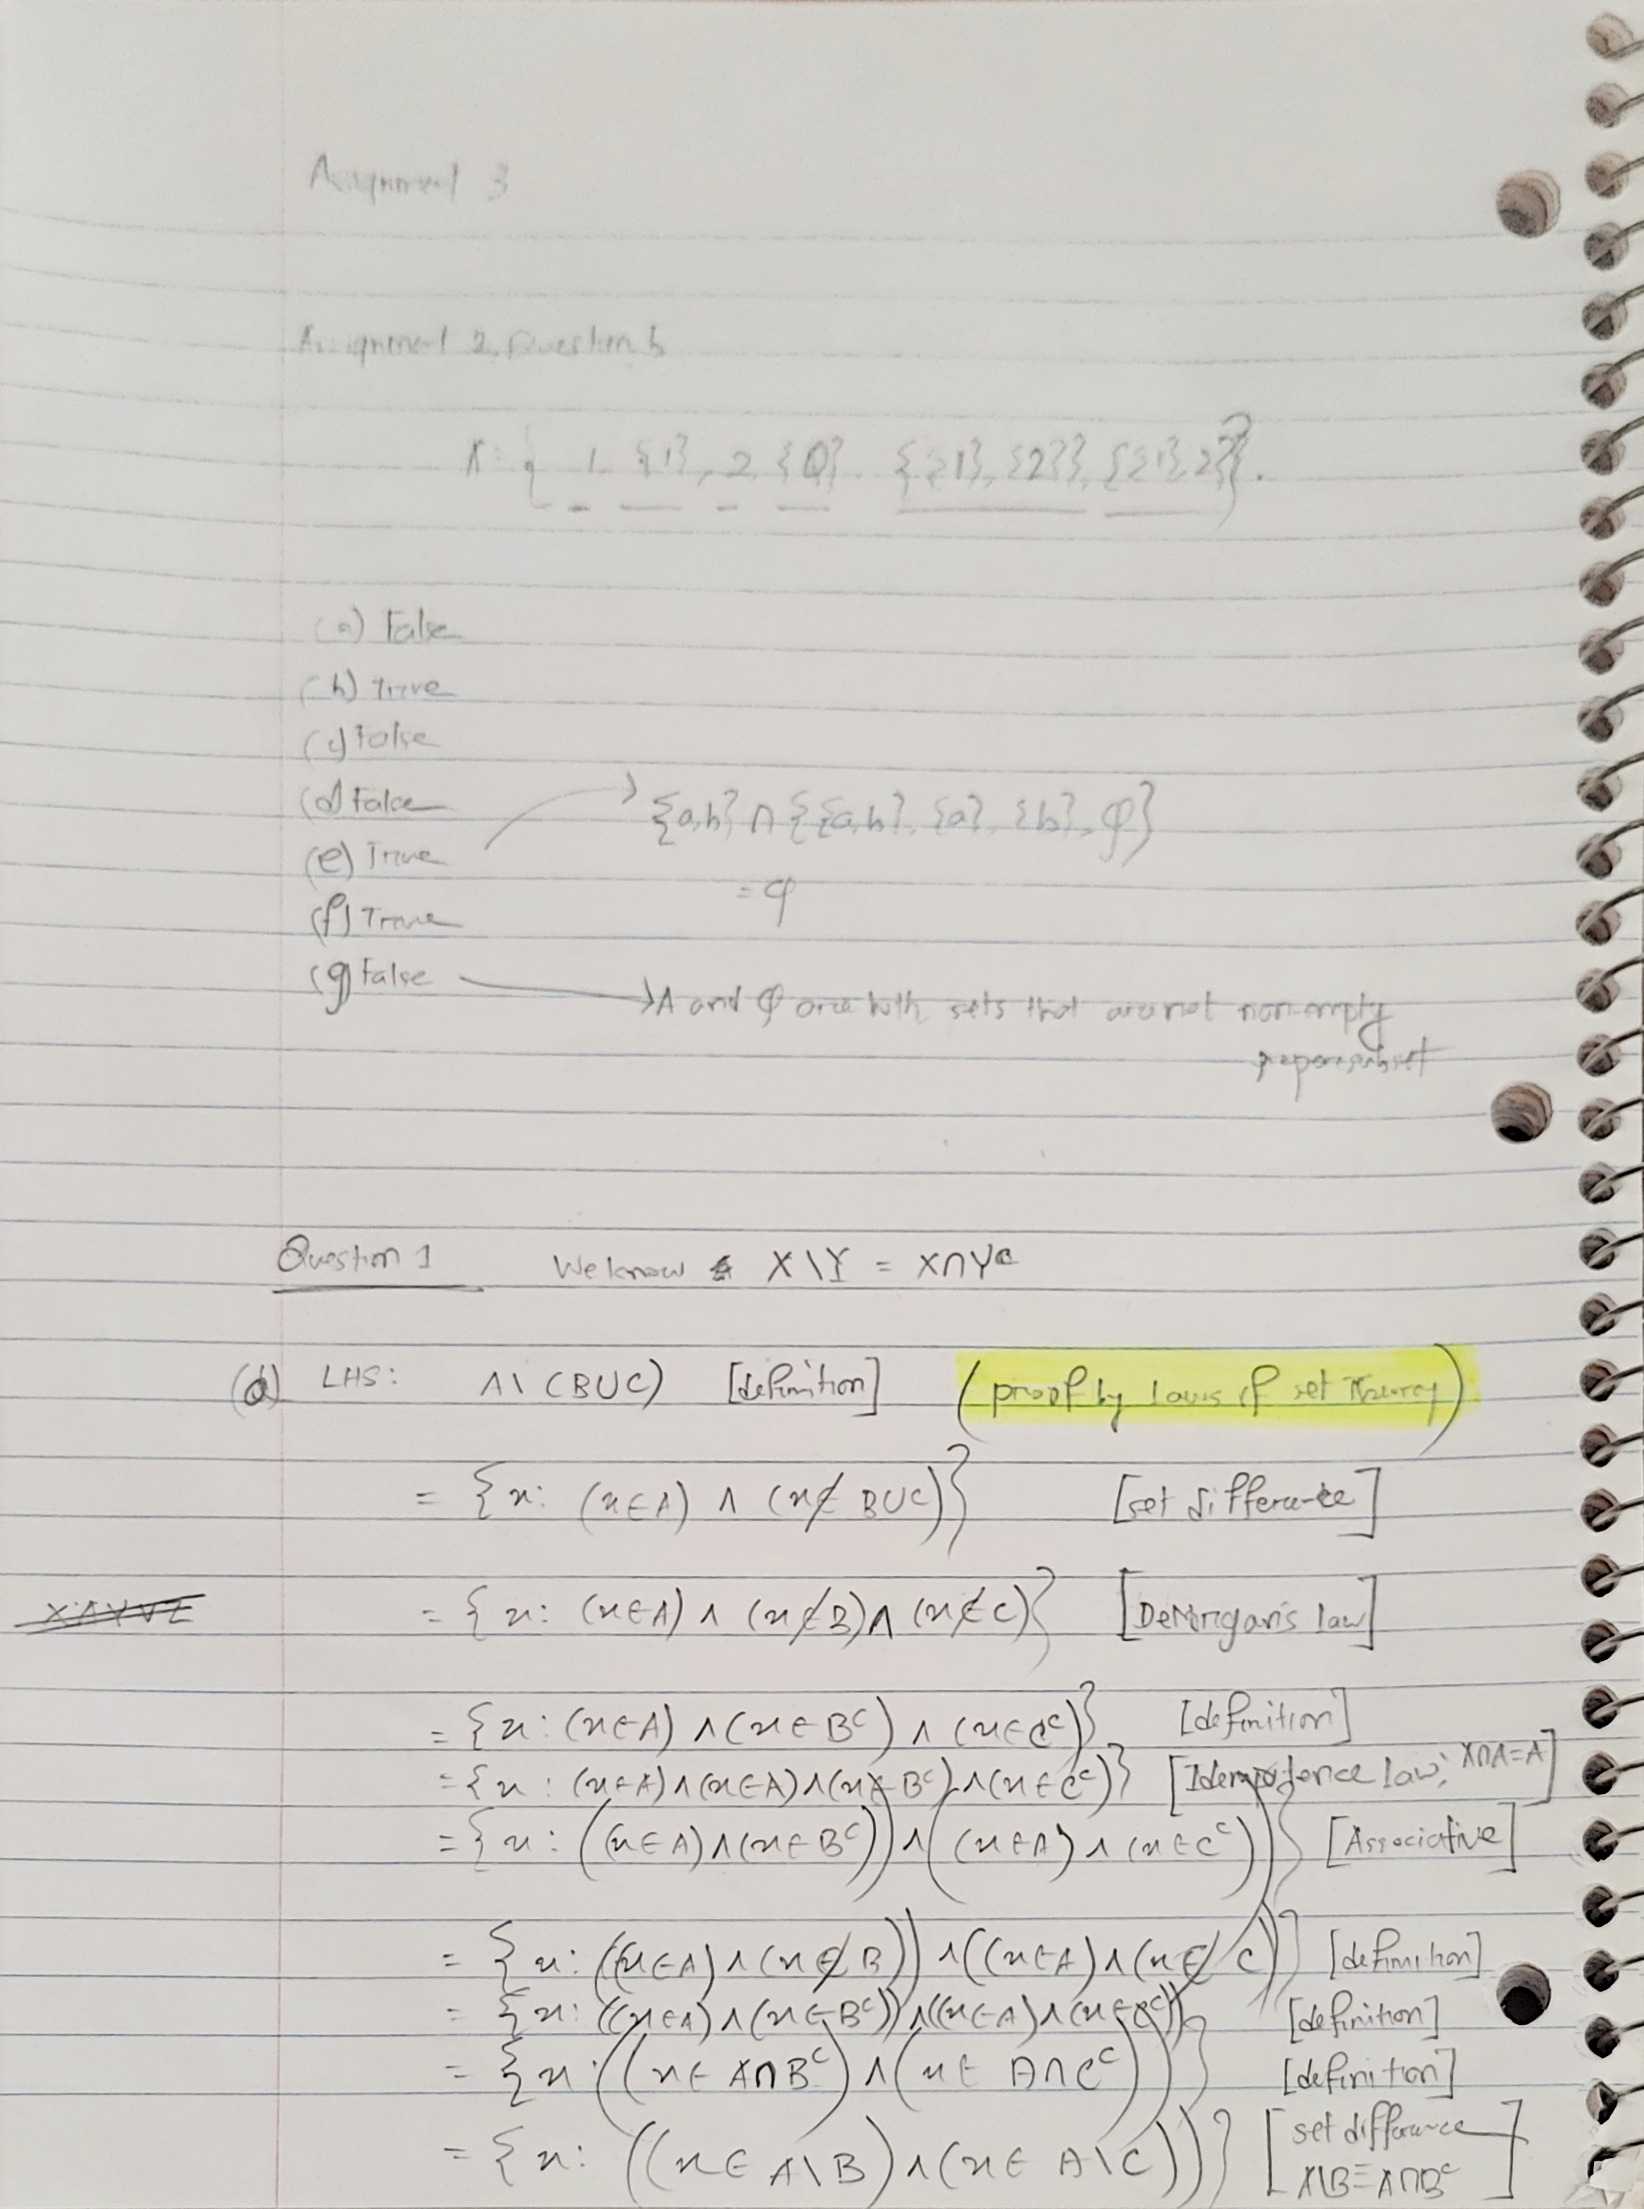 Assignment 3
Assignment 2, Question 6
A = { 1, {1}, 2, {φ}, {{1}, {2}}, {{1}, 2}}.
(a) False
(b) True
(c) False
(d) False
{a,b} ∩ {{a,b}, {a}, {b}, φ}
(e) True
= φ
(f) True
(g) False
A and φ are both sets that are not non-empty
proper subset
Question 1 We know X \ Y = X∩Yᶜ
(a) LHS: A \ (B∪C) [definition] (proof by laws of set theory)
= {x: (x∈A) ∧ (x∉ B∪C)} [set difference]
X∧Y∨Z
= {x: (x∈A) ∧ (x∉B) ∧ (x∉C)} [DeMorgan's law]
= {x: (x∈A) ∧ (x∈Bᶜ) ∧ (x∈Cᶜ)} [definition]
= {x: (x∈A) ∧ (x∈A) ∧ (x∈Bᶜ) ∧ (x∈Cᶜ)} [Idempotence law; X∩A=A]
= {x: ((x∈A) ∧ (x∈Bᶜ)) ∧ ((x∈A) ∧ (x∈Cᶜ))} [Associative]
= {x: ((x∈A) ∧ (x∉B)) ∧ ((x∈A) ∧ (x∉C))} [definition]
= {x: ((x∈A) ∧ (x∈Bᶜ)) ∧ ((x∈A) ∧ (x∈Cᶜ))} [definition]
= {x: ((x∈ A∩Bᶜ) ∧ (x∈ A∩Cᶜ))} [definition]
= {x: ((x∈ A\B) ∧ (x∈ A\C))} [set difference
A\B ≡ A∩Bᶜ]